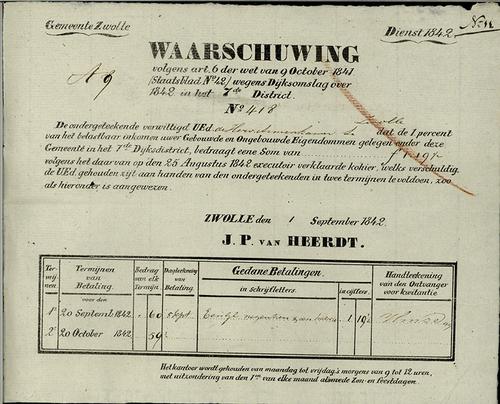 Gemeente Zwolle
Dienst 1842.
No. 11
WAARSCHUWING
A 9
volgens art. 6 der wet van 9 October 1841
(Staatsblad No. 42) wegens Dijksomslag over
1842 in het 7de District.
No. 418
Zwolle
De ondergeteekende verwittigd UEd. dat de 1 percent
van het belastbaar inkomen uwer Gebouwde en Ongebouwde Eigendommen gelegen onder deze
Gemeente in het 7de Dijksdistrict, bedraagt eene Som van f 1,19½
volgens het daarvan op den 25 Augustus 1842 executoir verklaarde kohier, welks verschuldig.
de UEd. gehouden zijt aan handen van den ondergeteekenden in twee termijnen te voldoen, zoo
als hieronder is aangewezen.
ZWOLLE den 1 September 1842.
J. P. VAN HEERDT.
Termijnen. Termijnen van Betaling. Bedrag van elk Termijn. Dagteekening van Betaling. Gedane Betalingen. Handteekening van den Ontvanger voor kwitantie
in schrijfletters. in cijfers.
voor den
1e 20 Septemb 1842 60 sept. 1 19½
2e 20 October 1842 59½
Het kantoor wordt gehouden van maandag tot vrijdag's morgens van 9 tot 12 uren,
met uitzondering van den 1sten van elke maand alsmede Zon- en feestdagen.